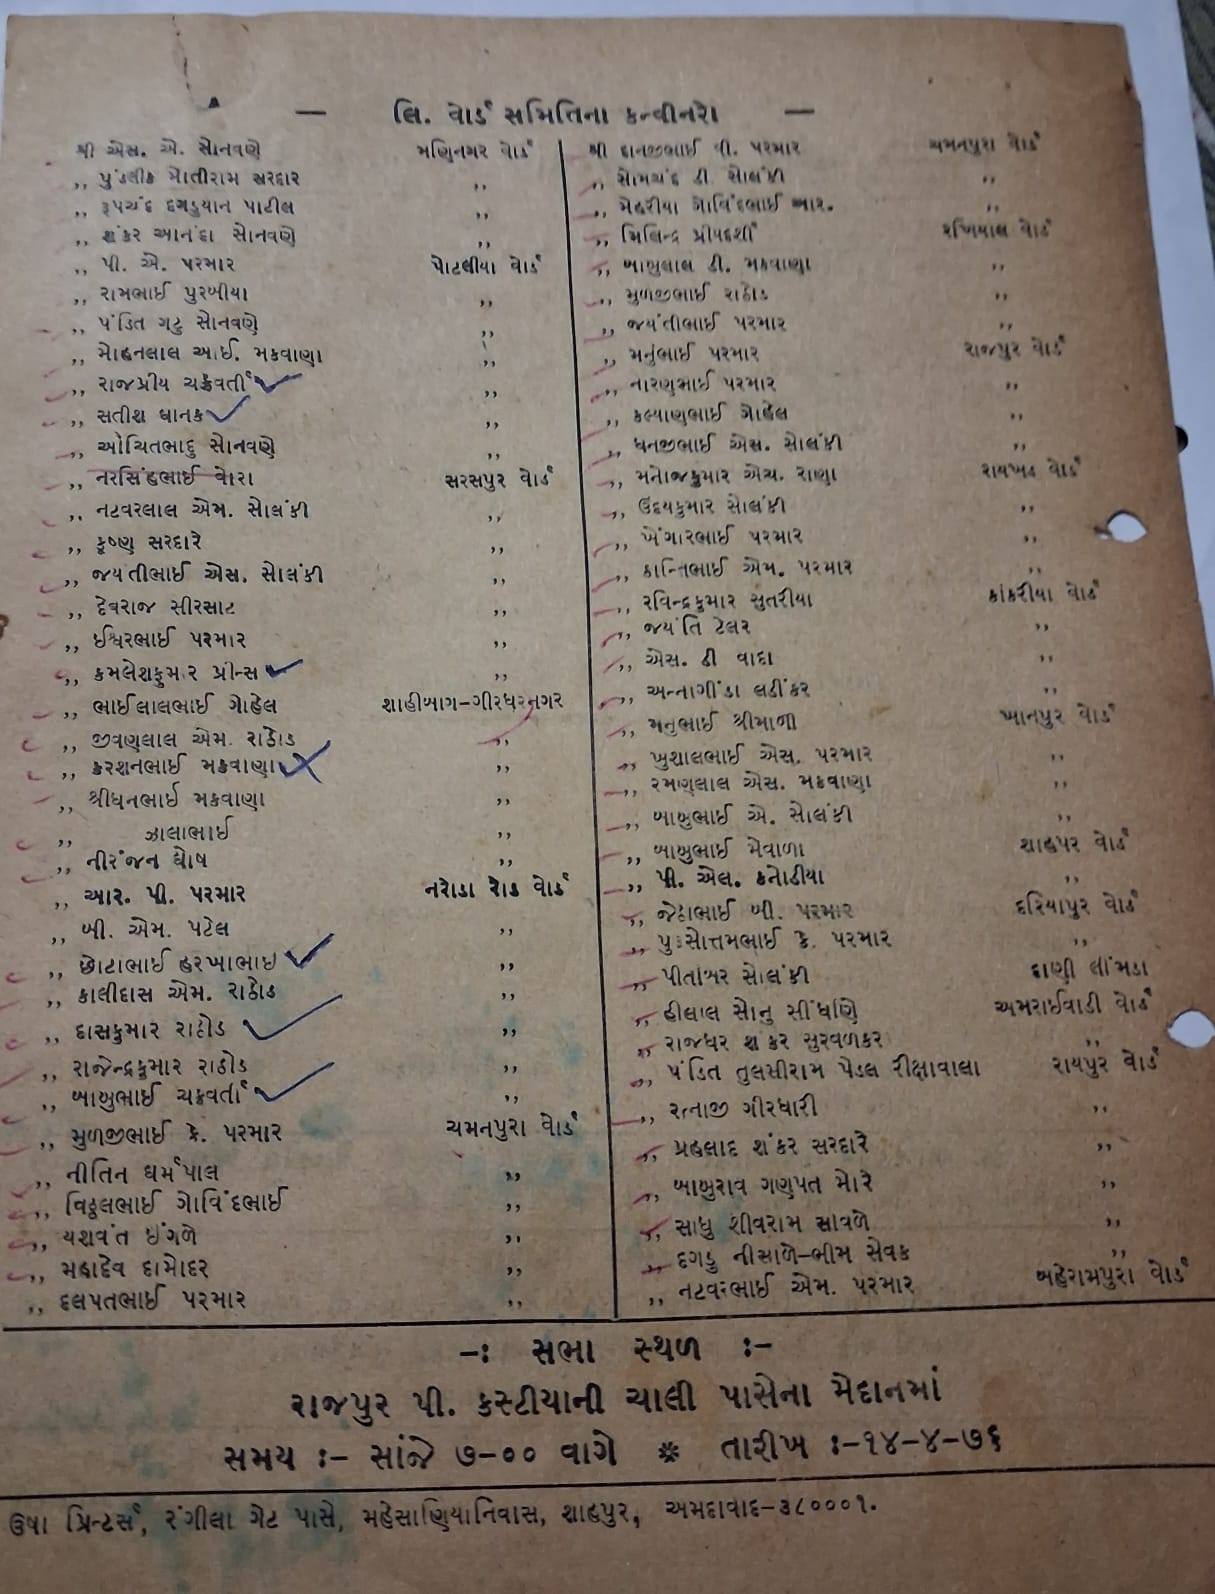 — લિ. વોર્ડ સમિતિના કન્વીનરો —
શ્રી એસ. એ. સોનવણે મણિનગર વોર્ડ
,, પુંડલીક મોતીરામ સરદાર ,,
,, રૂપચંદ દગડુયાન પાટીલ ,,
,, શંકર આનંદા સોનવણે ,,
,, પી. એ. પરમાર પોટલીયા વોર્ડ
,, રામભાઈ પુરબીયા ,,
,, પંડિત ગટુ સોનવણે ,,
,, મોહનલાલ આઈ. મકવાણા ,,
,, રાજપ્રીય ચક્રવર્તી ,,
,, સતીશ ધાનક ,,
,, ઓચિતભાદુ સોનવણે ,,
,, નરસિંહભાઈ વોરા સરસપુર વોર્ડ
,, નટવરલાલ એમ. સોલંકી ,,
,, કૃષ્ણ સરદારે ,,
,, જયંતીભાઈ એસ. સોલંકી ,,
,, દેવરાજ સીરસાટ ,,
,, ઈશ્વરભાઈ પરમાર ,,
,, કમલેશકુમાર પ્રીન્સ ,,
,, ભાઈલાલભાઈ ગોહેલ શાહીબાગ-ગીરધરનગર
,, જીવણલાલ એમ. રાઠોડ ,,
,, કરશનભાઈ મકવાણા ,,
,, શ્રીધનભાઈ મકવાણા ,,
,, ઝાલાભાઈ ,,
,, નીરંજન ઘોષ ,,
,, આર. પી. પરમાર નરોડા રોડ વોર્ડ
,, બી. એમ. પટેલ ,,
,, છોટાભાઈ હરખાભાઇ ,,
,, કાલીદાસ એમ. રાઠોડ ,,
,, દાસકુમાર રાઠોડ ,,
,, રાજેન્દ્રકુમાર રાઠોડ ,,
,, બાબુભાઈ ચક્રવર્તી ,,
,, મુળજીભાઈ કે. પરમાર ચમનપુરા વોર્ડ
,, નીતિન ધર્મપાલ ,,
,, વિઠ્ઠલભાઈ ગોવિંદભાઈ ,,
,, યશવંત ઇંગળે ,,
,, મહાદેવ દામોદર ,,
,, દલપતભાઈ પરમાર ,,
શ્રી દાનજીભાઈ વી. પરમાર ચમનપુરા વોર્ડ
,, સોમચંદ ડી. સોલંકી ,,
,, મેહરીયા ગોવિંદભાઈ આર. ,,
,, મિલિન્દ પ્રીયદર્શી રખિયાલ વોર્ડ
,, બાબુલાલ ડી. મકવાણા ,,
,, મુળજીભાઈ રાઠોડ ,,
,, જયંતીભાઈ પરમાર ,,
,, મનુભાઈ પરમાર રાજપુર વોર્ડ
,, નારણભાઈ પરમાર ,,
,, કલ્યાણભાઈ ગોહેલ ,,
,, ધનજીભાઈ એસ. સોલંકી ,,
,, મનોજકુમાર એચ. રાણા રાયખડ વોર્ડ
,, ઉદયકુમાર સોલંકી ,,
,, ખેંગારભાઈ પરમાર ,,
,, કાન્તિભાઈ એમ. પરમાર ,,
,, રવિન્દ્રકુમાર સુતરીયા કાંકરીયા વોર્ડ
,, જયંતિ ટેલર ,,
,, એસ. ડી વાદા ,,
,, અન્નાગીંડા લઢીંકર ,,
,, મનુભાઈ શ્રીમાળી ખાનપુર વોર્ડ
,, ખુશાલભાઈ એસ. પરમાર ,,
,, રમણલાલ એસ. મકવાણા ,,
,, બાબુભાઈ એ. સોલંકી ,,
,, બાબુભાઈ મેવાળા શાહપર વોર્ડ
,, પી. એલ. કનોઢીયા ,,
,, જેઠાભાઈ બી. પરમાર દરિયાપુર વોર્ડ
,, પુરુસોત્તમભાઈ કે. પરમાર ,,
,, પીતાંબર સોલંકી દાણી લીંમડા
,, હીલાલ સોનુ સીંધાણે અમરાઈવાડી વોર્ડ
,, રાજધર શંકર સુરવળકર ,,
,, પંડિત તુલસીરામ પેડલ રીક્ષાવાલા રાયપુર વોર્ડ
,, રત્નાજી ગીરધારી ,,
,, પ્રહલાદ શંકર સરદારે ,,
,, બાબુરાવ ગણપત મોરે ,,
,, સાધુ શીવરામ સાવળે ,,
,, દગડુ નીસાળે-ભીમ સેવક ,,
,, નટવરભાઈ એમ. પરમાર બહેરામપુરા વોર્ડ
-: સભા સ્થળ :-
રાજપુર પી. કસ્ટીયાની ચાલી પાસેના મેદાનમાં
સમય :- સાંજે ૭-૦૦ વાગે * તારીખ :-૧૪-૪-૭૬
ઉષા પ્રિન્ટર્સ, રંગીલા ગેટ પાસે, મહેસાણિયાનિવાસ, શાહપુર, અમદાવાદ-૩૮૦૦૦૧.